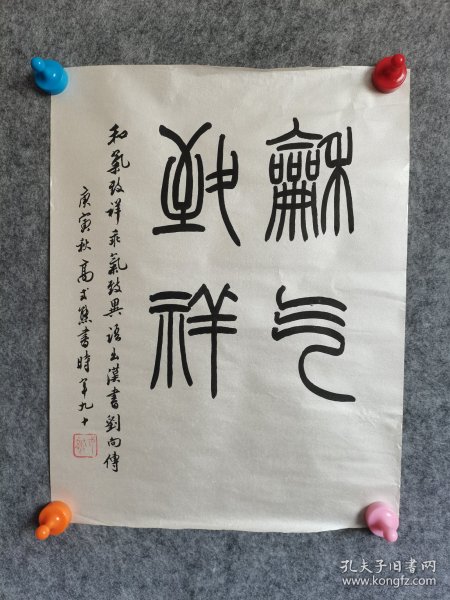 龢气
致祥
和氣致祥乖氣致異語出漢書劉向傳
庚寅秋高式熊書時年九十
孔夫子旧书网
www.kongfz.com